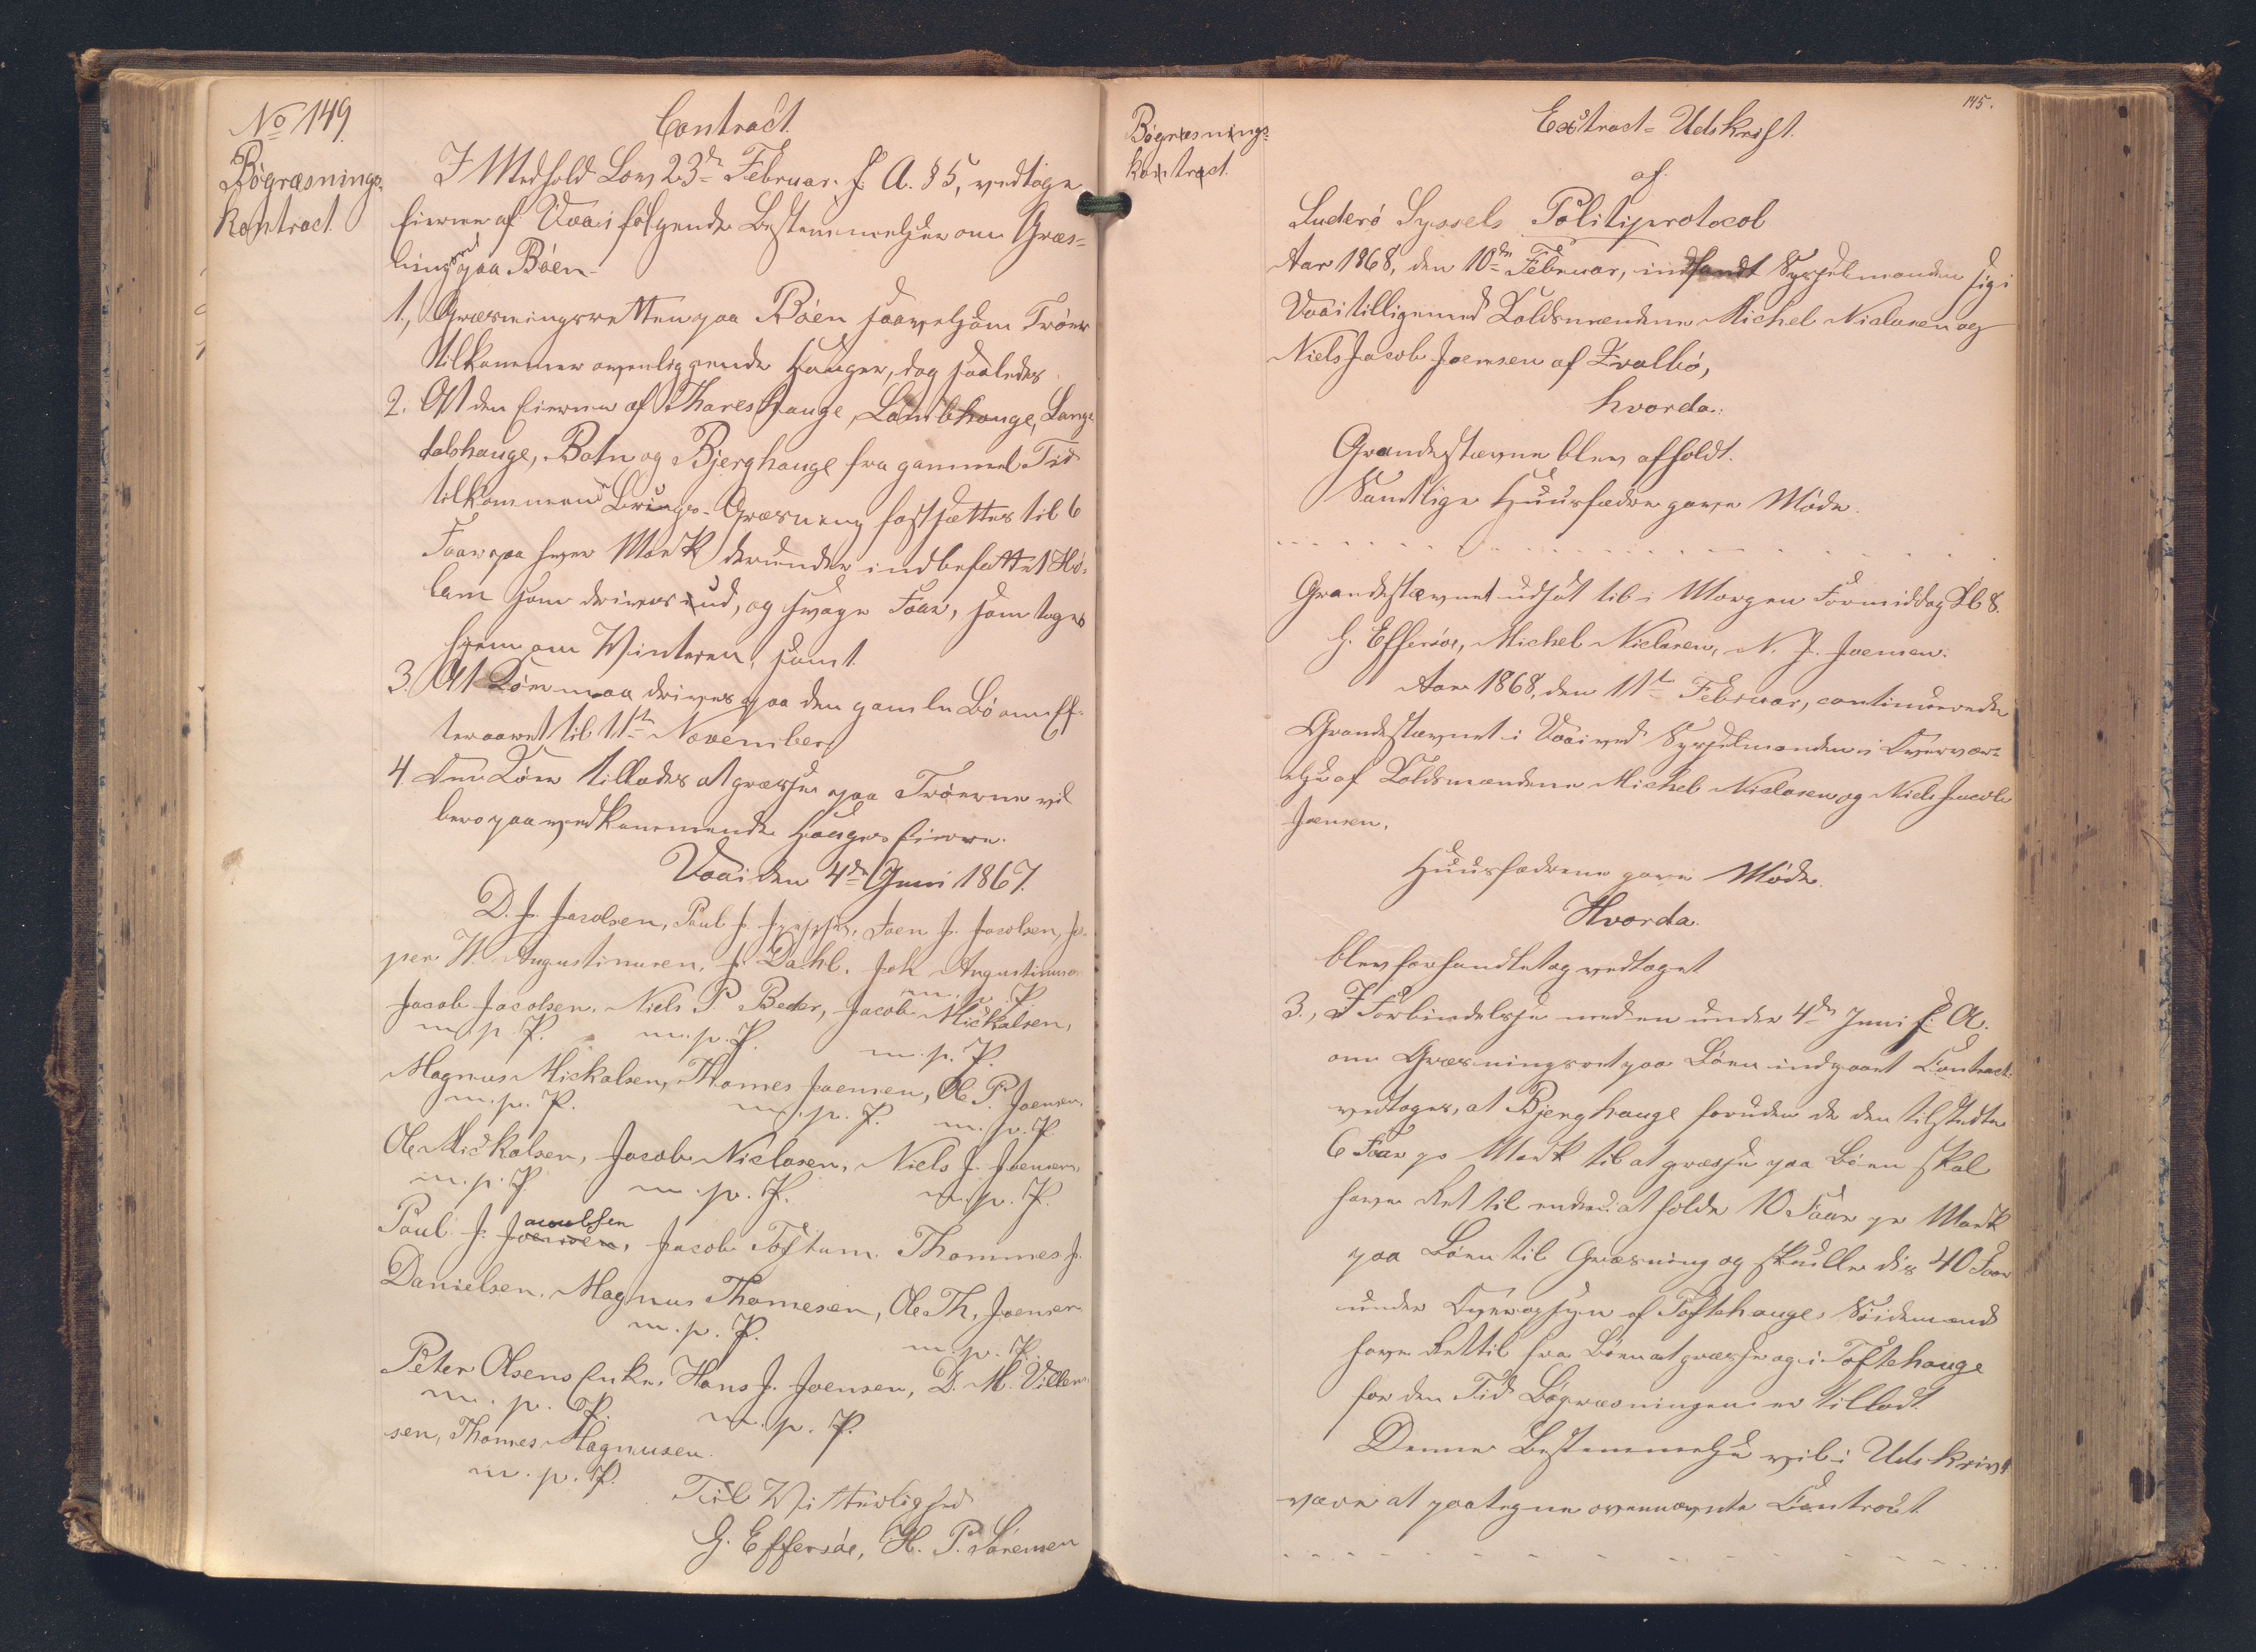 No 149.
Bøgræsnings-
Kontract.
Contract.
I Medhold Lov 23de Februar f. A. § 5, vedtage
Eierne af Vaai følgende Bestemmelser om Græs-
ning paa Bøen.
1., Græsningsretten paa Bøen saavelsom Trøer
tilkommer ovenliggende Hauger, dog saaledes
2. At den Eierne af Thareshauge, Lambhauge, Lang-
dalshauge, Botn og Bjerghauge fra gammel Tid
tilkommende Græsning fastsættes til 6
Faar paa hver Mark derunder indbefattet Hø-
lam som drives ud, og svage Faar, som tages
hjem om Vinteren, samt
3. At Køer maa drives paa den gamle Bø om Ef-
teraaret til 11te November
4. Om Køer tillades at græsse paa Trøerne vil
bero paa vedkommende Hauges Eiere.
Vaai den 4de Juni 1867.
D. J. Jacobsen, Paul J. Joen J. Jacobsen, Je-
per H. Augustinusen, J. Dahl. Joh Augustinusen
m. p. P.
Jacob Jacobsen, Niels P. Beder, Jacob Mickalsen,
m. p. P. m. p. P. m. p. P.
Magnus Mickalsen, Thomes Joensen, Ole P. Joensen,
m. p. P. m. p. P. m. p. P.
Ole Mickalsen, Jacob Niclasen, Niels J. Joensen,
m. p. P. m. p. P. m. p. P.
Paul J. Jacobsen, Jacob Toftum. Thommes J.
Danielsen, Magnus Thomesen, Ole Th. Joensen
m. p. P. m. p. P.
Peter Olsens Enke, Hans J. Joensen, D. M. Villum-
m. p. P. m. p. P.
sen, Thomes Magnusen.
m. p. P.
Til Vitterlighed
G. Effersøe, H. P. Sørensen
145.
Bøgræsnings-
kontract.
Extract-Udskrift.
af
Suderø Syssels Politiprotocol
Aar 1868, den 10de Februar, indfandt Sysselmanden sig i
Vaai tilligemed Koldsmændene Michel Niclasen og
Niels Jacob Joensen af Kvalbø,
hvorda:
Grandestævne blev afholdt.
Samtlige Huusfædre gave Møde.
Grandestævnet udsat til i Morgen Formiddag Kl 8.
G. Effersøe, Michel Niclasen, N. J. Joensen.
Aar 1868, den 11te Februar, continuerede
Grandestævnet i Vaai ved Sysselmanden i Overvær-
else af Koldsmændene Michel Niclasen og Niels Jacob
Joensen,
Huusfædrene gave Møde.
Hvorda.
blev forhandlet og vedtaget
3., I Forbindelse med en under 4de Juni f. A.
om Græsningsret paa Bøen indgaaet Contract
vedtages, at Bjerghauge foruden de den tilstedte
6 Faar pr Mark til at græsse paa Bøen skal
have Ret til endnu at holde 10 Faar pr Mark
paa Bøen til Græsning og skulle dis 40 Faar
under Overopsyn af Toftehauges Seidemænd
have Ret til fra Bøen at græsse og i Toftehauge
for den Tid Bøgræsningen er tilladt.
Denne Bestemmelse vil i Udskrivt
være at paategne ovennævnte Contract.